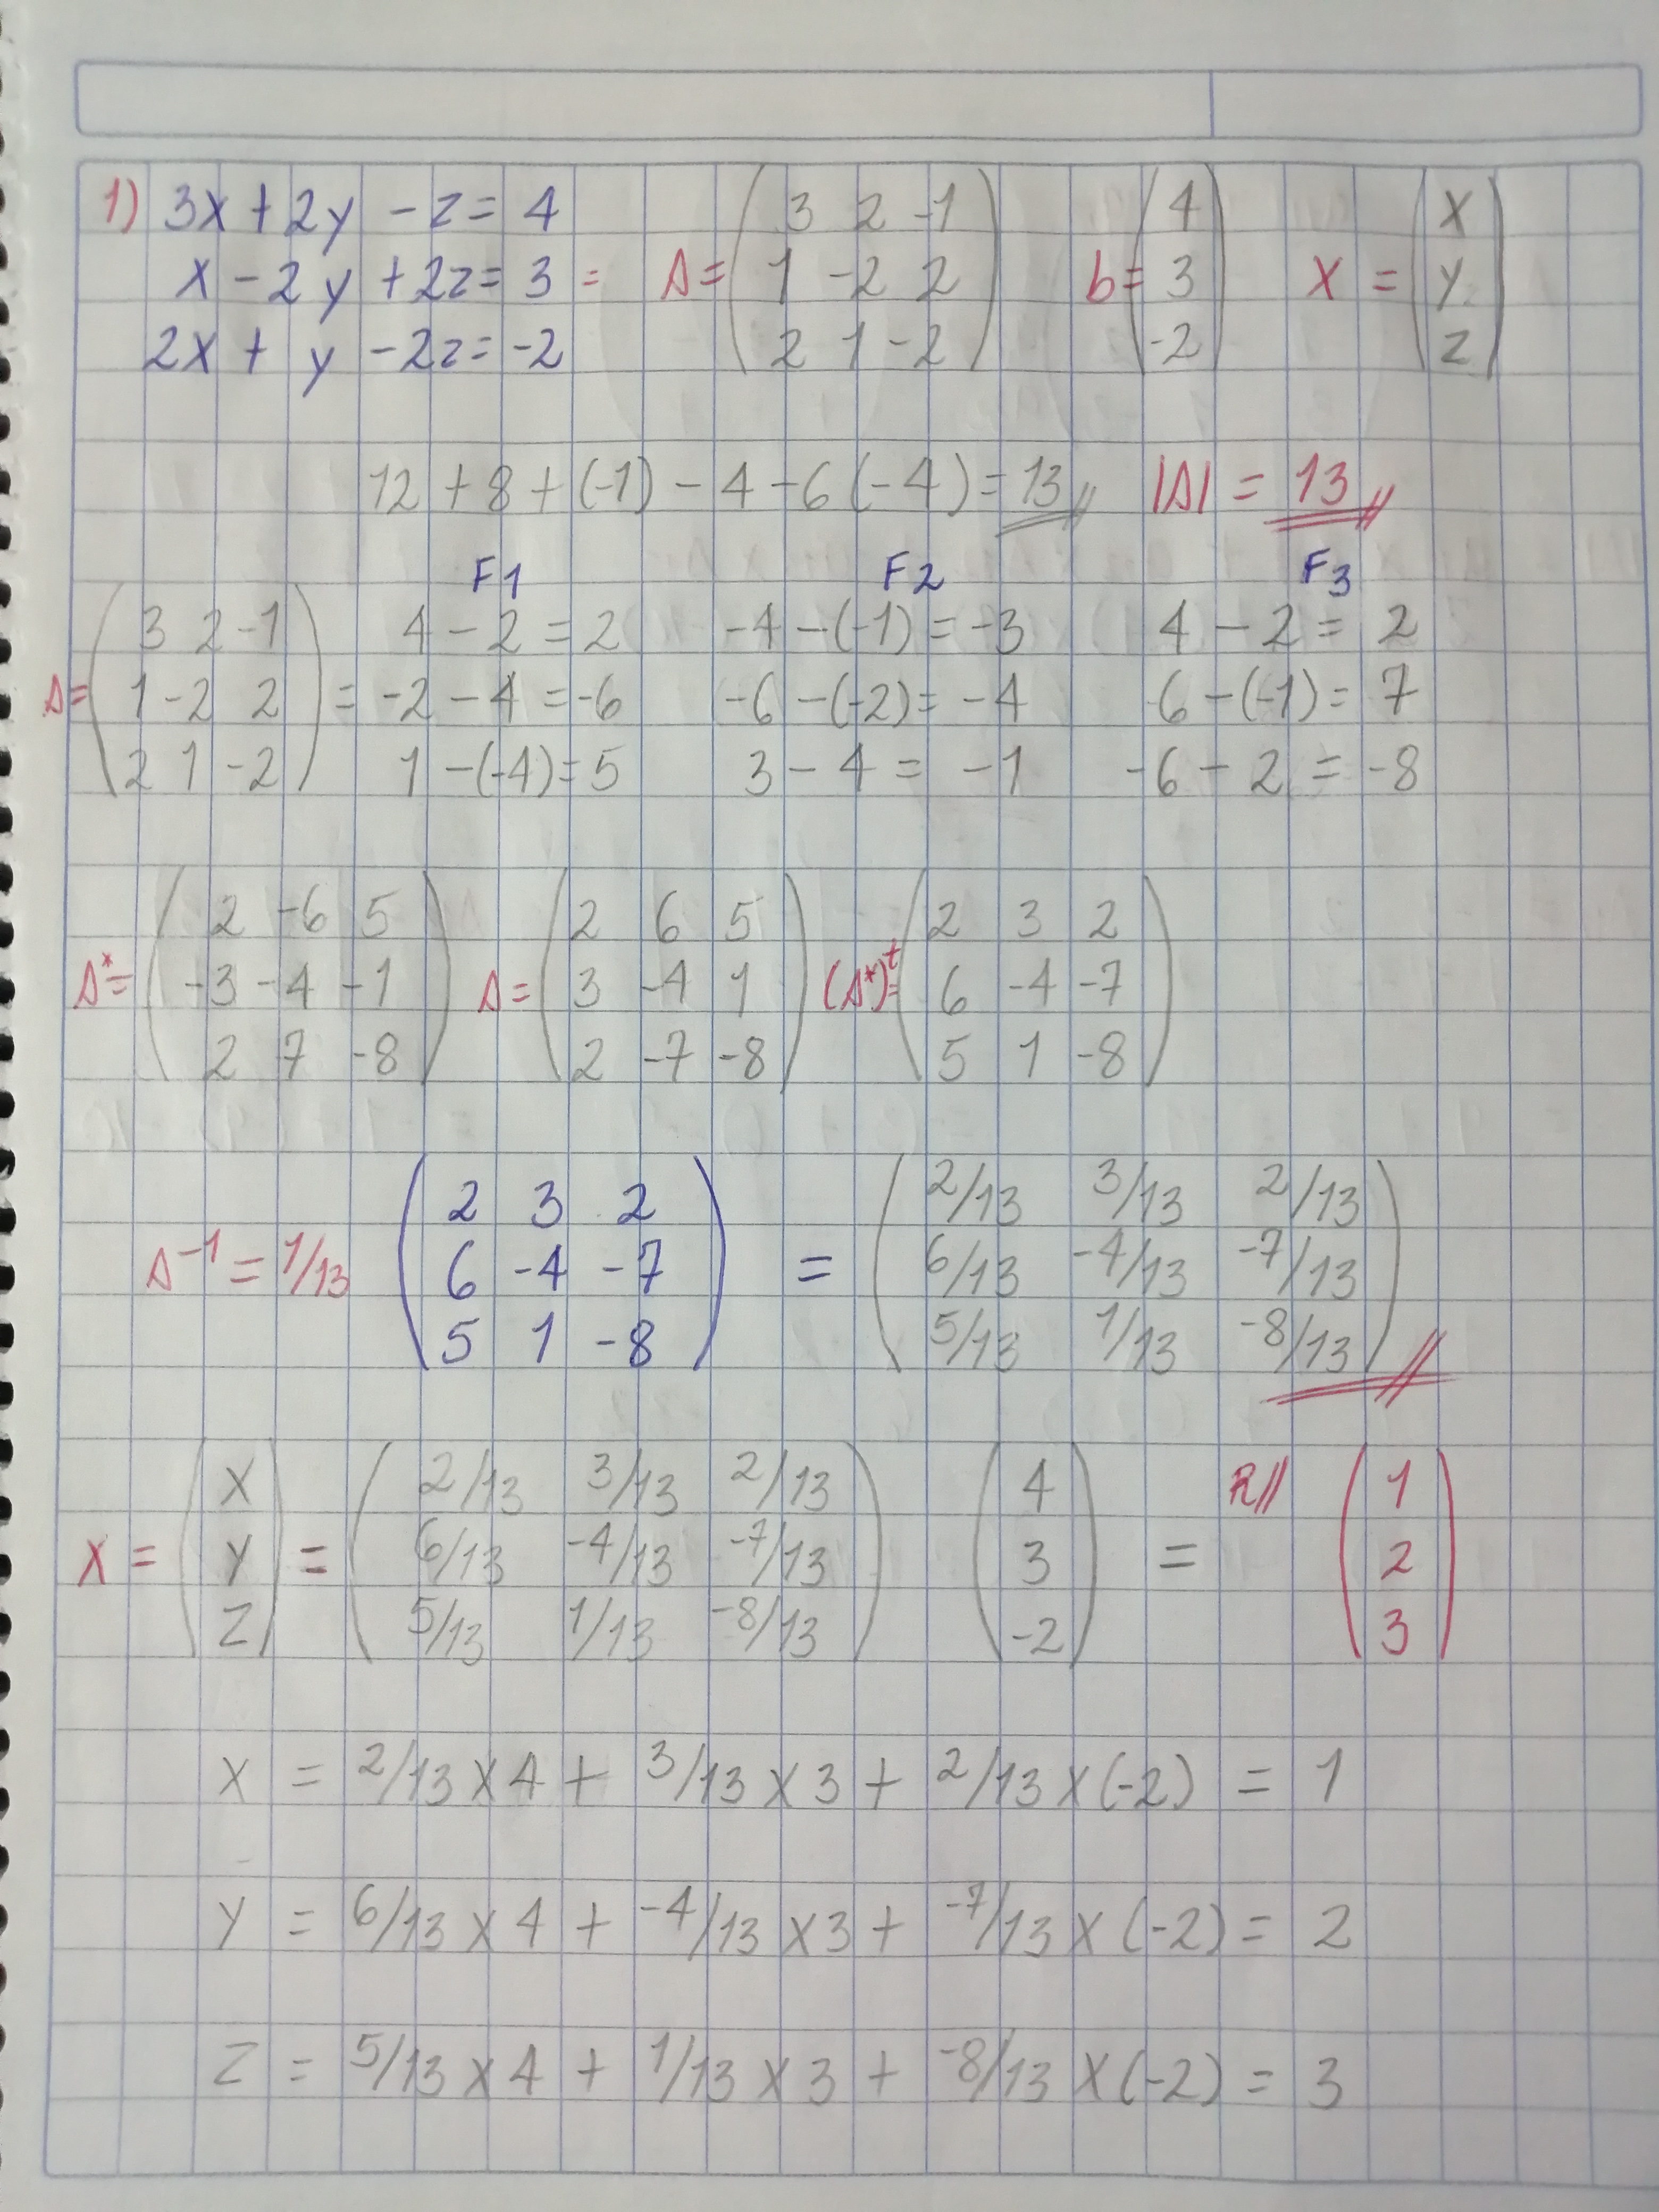 1) 3x + 2y - z = 4
x - 2y + 2z = 3 =
2x + y - 2z = -2
A = ( 3 2 -1
1 -2 2
2 1 -2 )
b = ( 4
3
-2 )
X = ( x
y
z )
12 + 8 + (-1) - 4 - 6 (-4) = 13 |A| = 13
F1 F2 F3
A = ( 3 2 -1
1 -2 2
2 1 -2 ) =
4 - 2 = 2
-2 - 4 = -6
1 - (-4) = 5
-4 - (-1) = -3
-6 - (-2) = -4
3 - 4 = -1
4 - 2 = 2
6 - (-1) = 7
-6 - 2 = -8
A* = ( 2 -6 5
-3 -4 -1
2 7 -8 )
A = ( 2 6 5
3 -4 1
2 -7 -8 )
(A*)t = ( 2 3 2
6 -4 -7
5 1 -8 )
A⁻¹ = 1/13 ( 2 3 2
6 -4 -7
5 1 -8 )
= ( 2/13 3/13 2/13
6/13 -4/13 -7/13
5/13 1/13 -8/13 )
X = ( x
y
z )
= ( 2/13 3/13 2/13
6/13 -4/13 -7/13
5/13 1/13 -8/13 )
( 4
3
-2 )
= R// ( 1
2
3 )
X = 2/13 x 4 + 3/13 x 3 + 2/13 x (-2) = 1
Y = 6/13 x 4 + -4/13 x 3 + -7/13 x (-2) = 2
Z = 5/13 x 4 + 1/13 x 3 + -8/13 x (-2) = 3